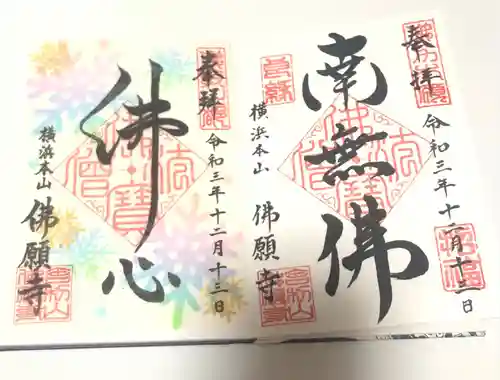 奉拝
南無佛
令和三年十二月十三日
横浜本山 佛願寺
奉拝
佛心
令和三年十二月十三日
横浜本山 佛願寺
佛法僧寶
佛法僧寶